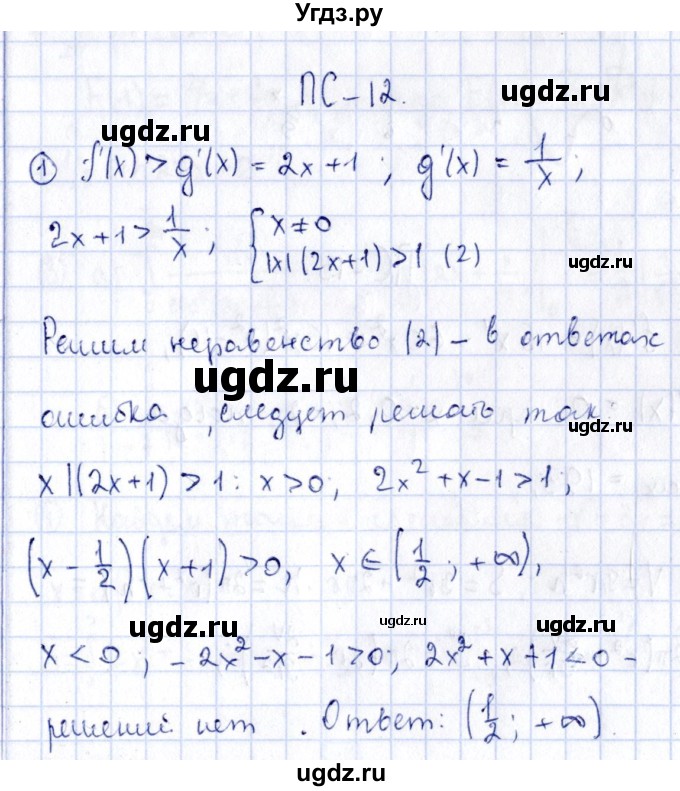 Угдз.ру
ПС-12.
ugdz.ru
ugdz.ru
① f'(x) > g'(x) = 2x+1 ; g'(x) = 1/x ;
2x+1 > 1/x ; { x ≠ 0
|x|(2x+1) > 1 (2)
ugdz.ru
Решим неравенство (2) – в ответах
ugdz.ru
ошибка, следует решать так:
ugdz.ru
x|(2x+1) > 1: x > 0, 2x² + x - 1 > 1;
(x - 1/2)(x + 1) > 0, x ∈ (1/2 ; +∞),
ugdz.ru
ugdz.ru
ugdz.ru
x < 0 ; -2x² - x - 1 > 0; 2x² + x + 1 < 0 -
решений нет. Ответ: (1/2 ; +∞).
ugdz.ru
ugdz.ru